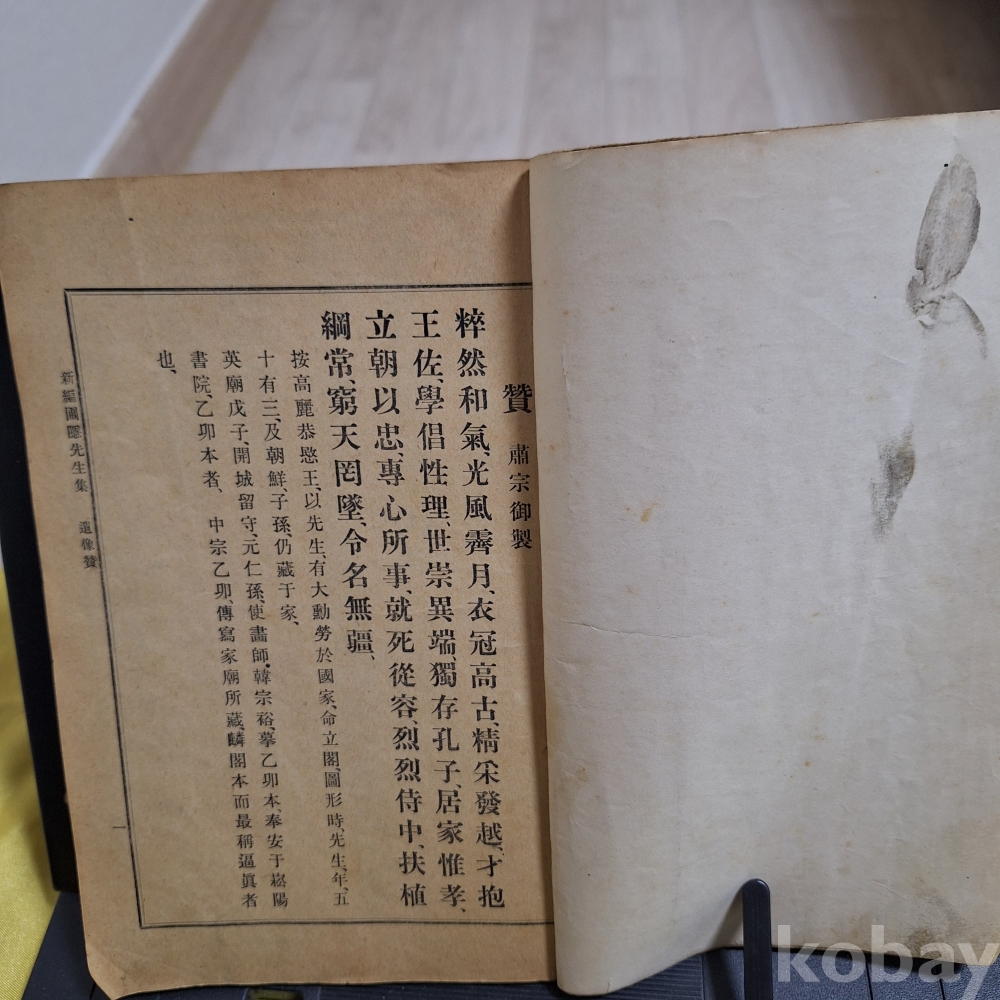 贊 肅宗御製
粹然和氣、光風霽月、衣冠高古、精采發越、才抱
王佐、學倡性理、世崇異端、獨存孔子、居家惟孝、
立朝以忠、專心所事、就死從容、烈烈侍中、扶植
綱常、窮天罔墜、令名無疆、
按高麗恭愍王、以先生、有大勳勞於國家、命立閣、圖形時、先生、年、五
十有三、及朝鮮、子孫、仍藏于家、
英廟戊子、開城留守、元仁孫、使畵師、韓宗裕、摹乙卯本、奉安于崧陽
書院、乙卯本者、 中宗乙卯、傳寫家廟所藏、麟閣本而最稱逼眞者
也、
新編圃隱先生集 遺像贊 一
kobay